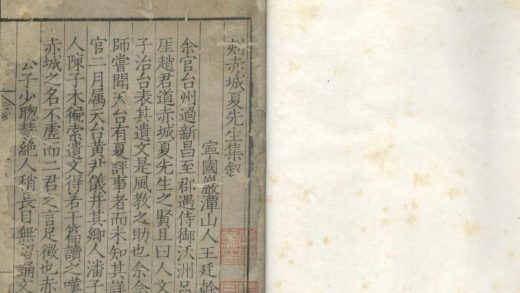 刻赤城夏先生集叙
寧國嚴潭山人王廷幹
余官台州過新昌至郡遇侍御沃洲吕
厓趙君道赤城夏先生之賢且曰人文
子治台表其遺文是風教之助也余念
師嘗聞天台有夏評事者而未知其詳
官二月属天台黄尹儀并其鄉人潘子
人陳子木徧索遺文得若干篇讀之嘆
赤城之名不虚而二君之言足徴也赤
公子少聰慧絶人稍長目無習誦文